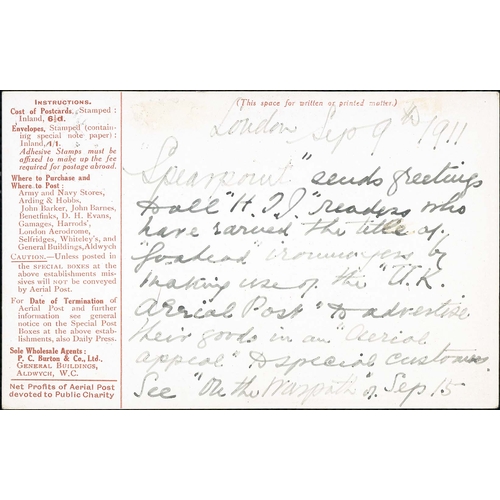 INSTRUCTIONS.
Cost of Postcards, Stamped:
Inland, 6½d.
Envelopes, Stamped (contain-
ing special note paper):
Inland, 1/1.
Adhesive Stamps must be
affixed to make up the fee
required for postage abroad.
Where to Purchase and
Where to Post:
Army and Navy Stores,
Arding & Hobbs,
John Barker, John Barnes,
Benetfinks, D. H. Evans,
Gamages, Harrods',
London Aerodrome,
Selfridges, Whiteley's, and
General Buildings, Aldwych
CAUTION.—Unless posted in
the SPECIAL BOXES at the
above establishments mis-
sives will NOT be conveyed
by Aerial Post.
For Date of Termination of
Aerial Post and further
information see general
notice on the Special Post
Boxes at the above estab-
lishments, also Daily Press.
Sole Wholesale Agents:
P. C. Burton & Co., Ltd.,
GENERAL BUILDINGS,
ALDWYCH, W.C.
Net Profits of Aerial Post
devoted to Public Charity
(This space for written or printed matter.)
London Sep 9th 1911
"Spearpoint" sends greetings
to all "H.T.J." readers who
have earned the title of
"Goahead" ironmongers by
making use of the "U.K.
Aerial Post" to advertise
their goods in an "aerial
appeal" to special customers.
See "On the Warpath" of Sep 15